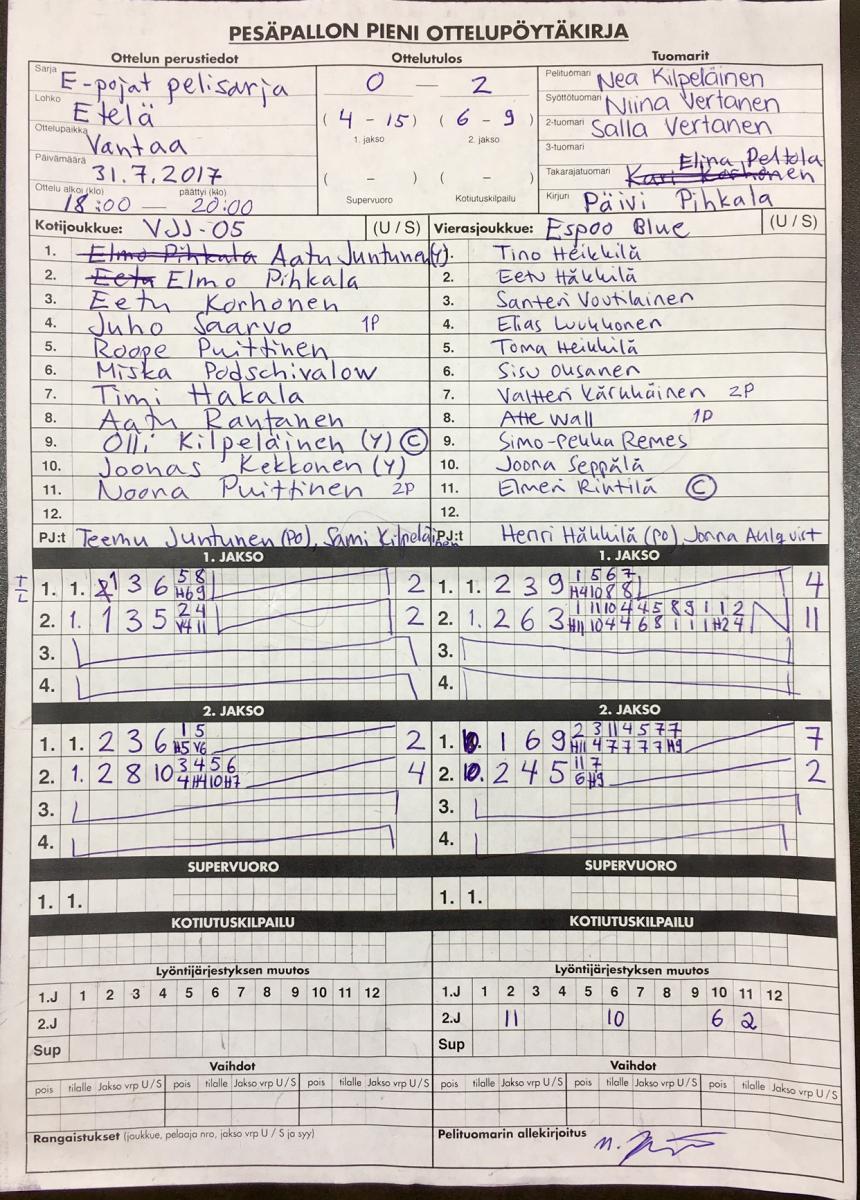 PESÄPALLON PIENI OTTELUPÖYTÄKIRJA
Ottelun perustiedot
Sarja E-pojat pelisarja
Lohko Etelä
Ottelupaikka Vantaa
Päivämäärä 31.7.2017
Ottelu alkoi (klo) päättyi (klo)
18:00 — 20:00
Ottelutulos
0 — 2
(4 - 15) (6 - 9)
1. jakso 2. jakso
( - ) ( - )
Supervuoro Kotiutuskilpailu
Tuomarit
Pelituomari Nea Kilpeläinen
Syöttötuomari Niina Vertanen
2-tuomari Salla Vertanen
3-tuomari
Elina Peltola
Takarajatuomari Kari Korhonen
Kirjuri Päivi Pihkala
Kotijoukkue: VJJ-05 (U / S)
1. Elmo Pihkala Aatu Juntunen (Y)
2. Eetu Elmo Pihkala
3. Eetu Korhonen
4. Juho Saarvo 1P
5. Roope Puittinen
6. Miska Podschivalow
7. Timi Hakala
8. Aatu Rantanen
9. Olli Kilpeläinen (Y) C
10. Joonas Kekkonen (Y)
11. Noona Puittinen 2P
12.
PJ:t Teemu Juntunen (PO), Sami Kilpeläinen
Vierasjoukkue: Espoo Blue (U / S)
1. Tino Heikkilä
2. Eetu Häkkilä
3. Santeri Voutilainen
4. Elias Luukkonen
5. Toma Heikkilä
6. Sisu Ousanen
7. Valtteri Kärkkäinen 2P
8. Atte Wall 1P
9. Simo-Pekka Remes
10. Joona Seppälä
11. Elmeri Rintilä C
12.
PJ:t Henri Häkkilä (PO), Jonna Ahlqvist
1. JAKSO
T/L
1. 1. 1 3 6 5 8 2
H6 9
2. 1. 1 3 5 2 4 2
V4 11
3.
4.
2. JAKSO
1. 1. 2 3 6 1 5 2
H5 V6
2. 1. 2 8 10 3 4 5 6 4
4 H4 10 H7
3.
4.
SUPERVUORO
1. 1.
KOTIUTUSKILPAILU
1. JAKSO
1. 1. 2 3 9 1 5 6 7 4
H4 10 8 8
2. 1. 2 6 3 1 11 10 4 4 5 8 9 1 1 2 11
H11 10 4 4 6 8 1 1 1 H2 4
3.
4.
2. JAKSO
1. 10. 1 6 9 2 3 11 4 5 7 7 7
H11 4 7 7 7 7 H9
2. 10. 2 4 5 11 7 2
6 H9
3.
4.
SUPERVUORO
1. 1.
KOTIUTUSKILPAILU
Lyöntijärjestyksen muutos
1.J 1 2 3 4 5 6 7 8 9 10 11 12
2.J
Sup
Vaihdot
pois tilalle Jakso vrp U / S pois tilalle Jakso vrp U / S pois tilalle Jakso vrp U / S
Rangaistukset (joukkue, pelaaja nro, jakso vrp U / S ja syy)
Lyöntijärjestyksen muutos
1.J 1 2 3 4 5 6 7 8 9 10 11 12
2.J 11 10 6 2
Sup
Vaihdot
pois tilalle Jakso vrp U / S pois tilalle Jakso vrp U / S pois tilalle Jakso vrp U / S
Pelituomarin allekirjoitus